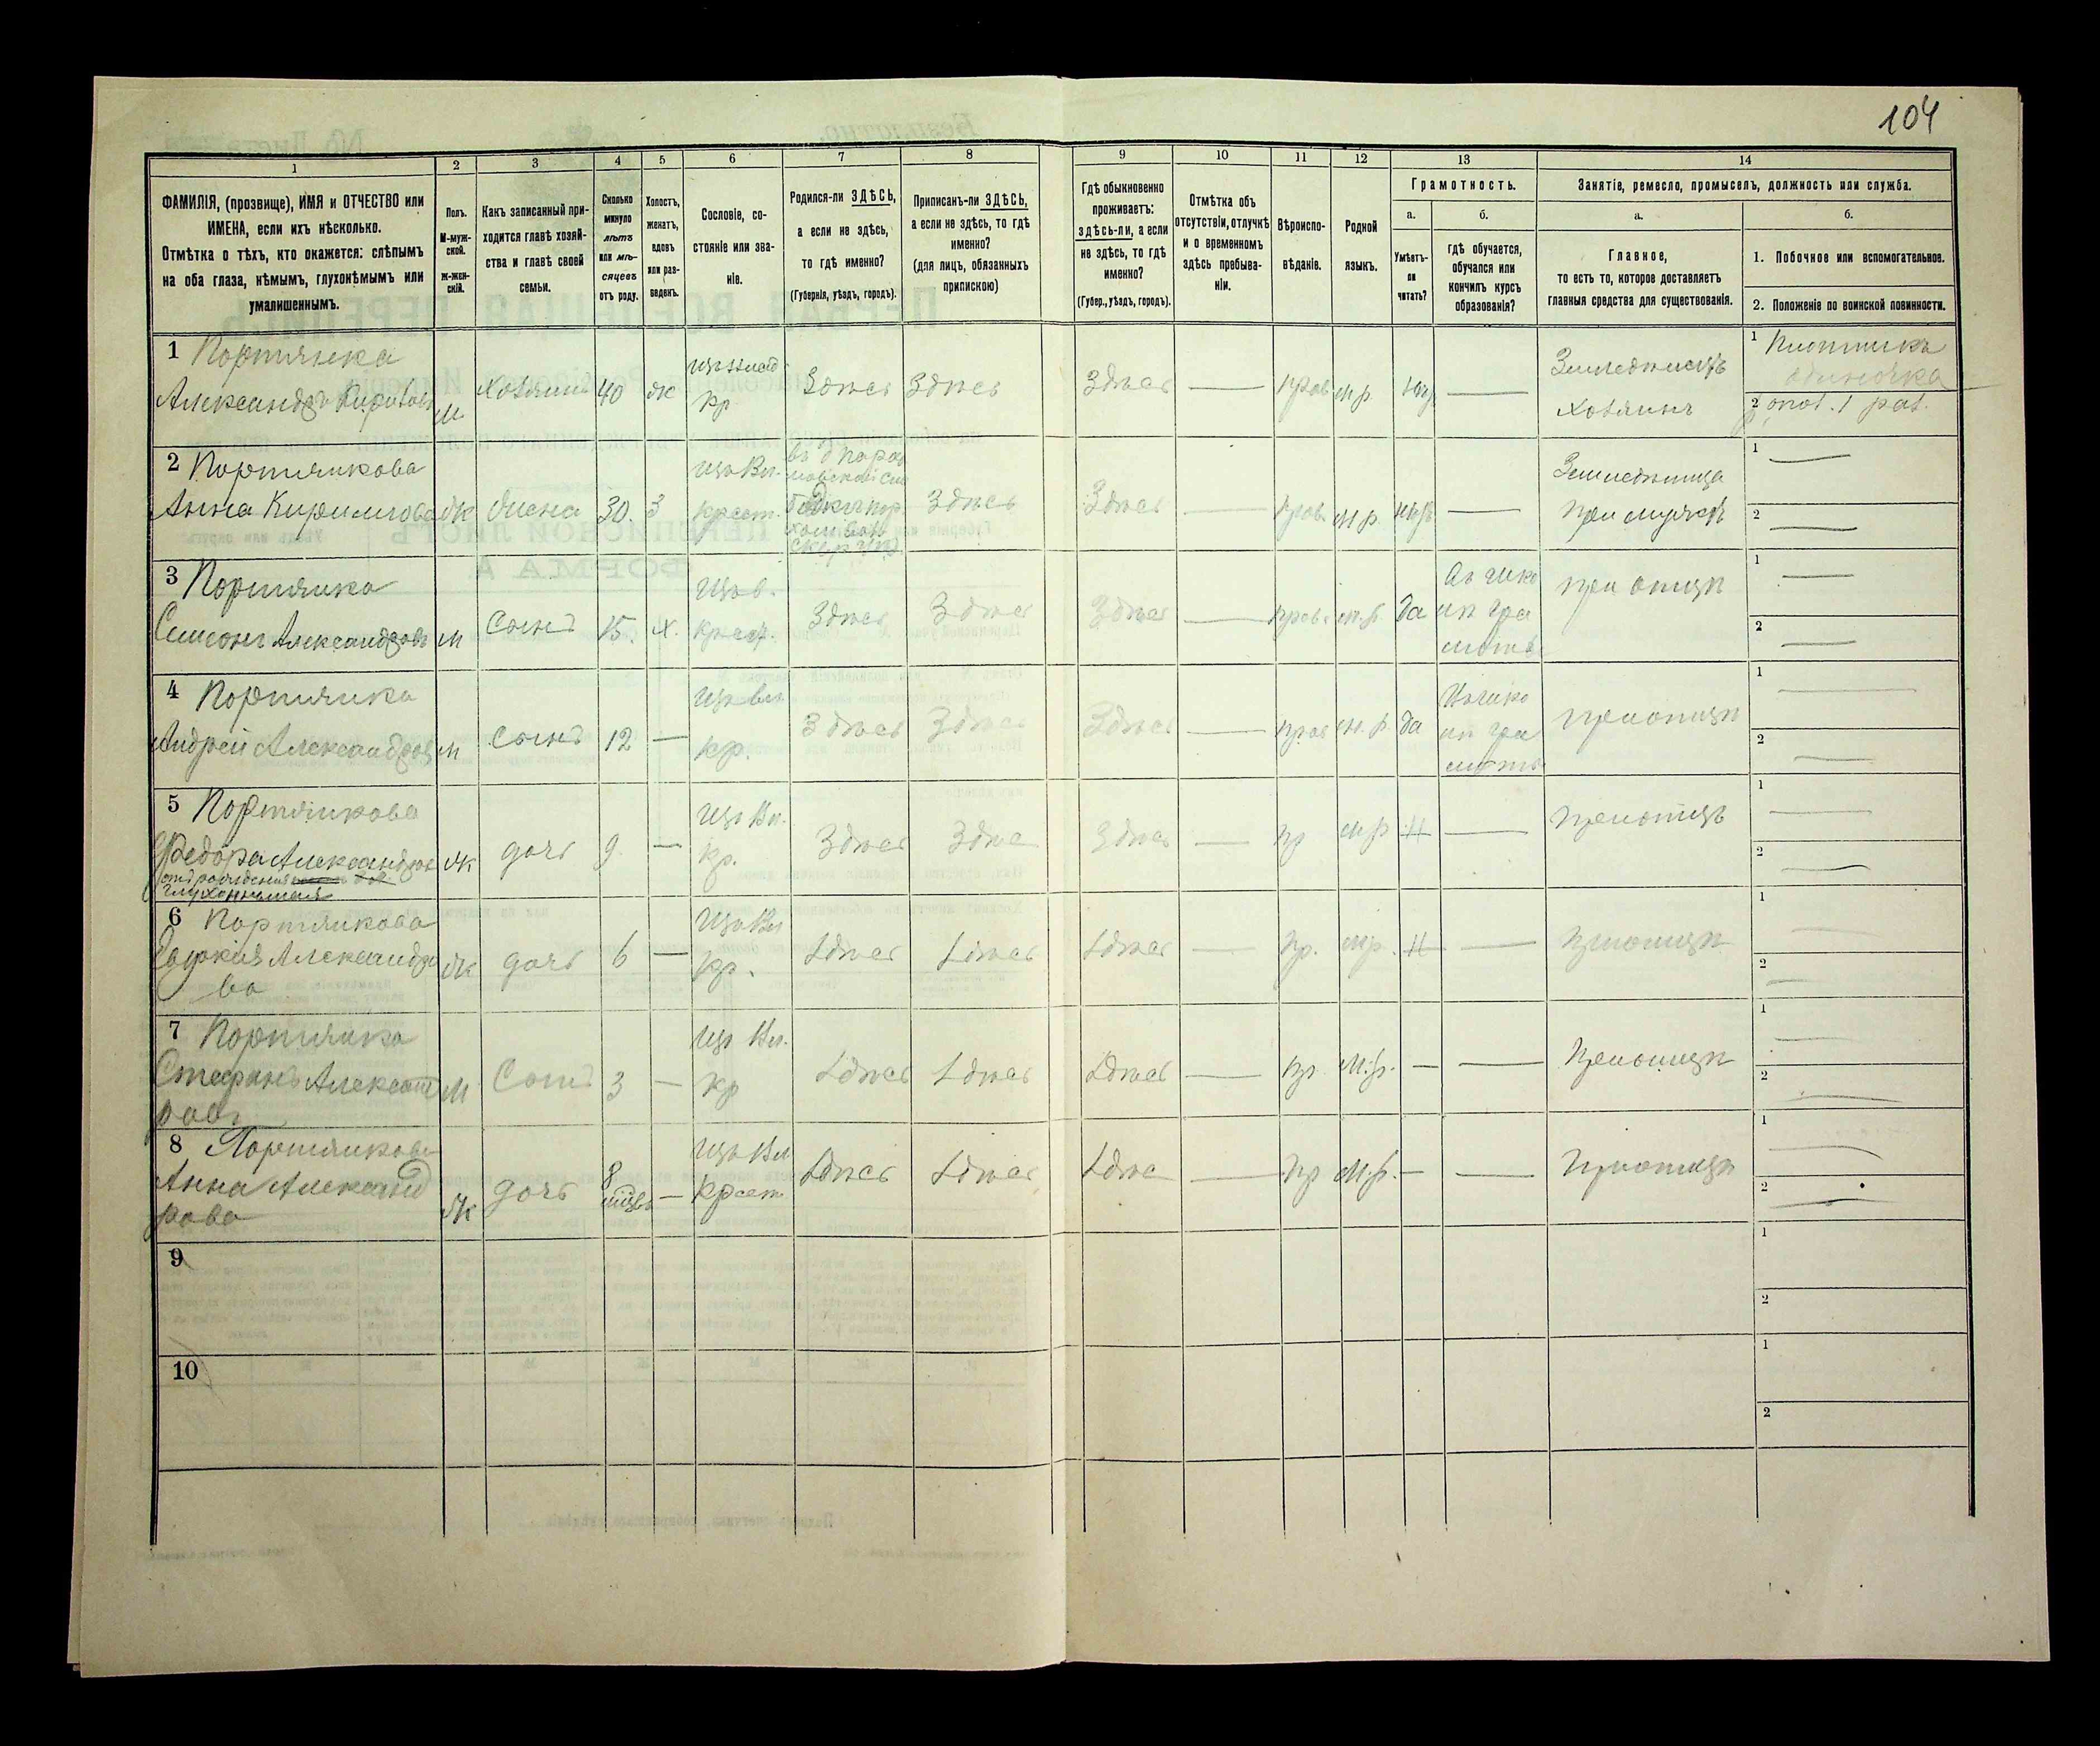 104
1
2
3
4
5
6
7
8
9
10
11
12
13
14
ФАМИЛІЯ, (прозвище), ИМЯ и ОТЧЕСТВО или
ИМЕНА, если ихъ нѣсколько.
Отмѣтка о тѣхъ, кто окажется: слѣпымъ
на оба глаза, нѣмымъ, глухонѣмымъ или
умалишеннымъ.
Полъ.
М-муж-
ской.
ж-жен-
скій.
Какъ записанный при-
ходится главѣ хозяй-
ства и главѣ своей
семьи.
Сколько
минуло
лѣтъ
или мѣ-
сяцевъ
отъ роду.
Холостъ,
женатъ,
вдовъ
или раз-
веденъ.
Сословіе, со-
стояніе или зва-
ніе.
Родился-ли ЗДѢСЬ,
а если не здѣсь,
то гдѣ именно?
(Губернія, уѣздъ, городъ).
Приписанъ-ли ЗДѢСЬ,
а если не здѣсь, то гдѣ
именно?
(для лицъ, обязанныхъ
припискою)
Гдѣ обыкновенно
проживаетъ:
здѣсь-ли, а если
не здѣсь, то гдѣ
именно?
(Губер., уѣздъ, городъ).
Отмѣтка объ
отсутствіи, отлучкѣ
и о временномъ
здѣсь пребыва-
ніи.
Вѣроиспо-
вѣданіе.
Родной
языкъ.
Грамотность.
а.
б.
Умѣетъ-
ли
читать?
гдѣ обучается,
обучался или
кончилъ курсъ
образованія?
Занятіе, ремесло, промыселъ, должность или служба.
а.
б.
Главное,
то есть то, которое доставляетъ
главныя средства для существованія.
1. Побочное или вспомогательное.
2. Положеніе по воинской повинности.
1 Портянка
Александръ
М
хозяинъ
40
ж
кр
Здѣсь
Здѣсь
Здѣсь
прав
м.р.
Земледѣлецъ
хозяинъ
1 Плотникъ
одиночка
2
2 Портянкова
Анна Кирилова
ж
жена
30
З
крест.
Здѣсь
Здѣсь
прав.
м.р.
Земледѣлица
при мужѣ
1
2
3 Портянка
Симонъ Александровъ
м
Сынъ
15.
х.
крест.
Здѣсь
Здѣсь
Здѣсь
прав.
м.р.
да
при отцѣ
1
2
4 Портянка
Андрей Александровъ
м
Сынъ
12
кр.
Здѣсь
Здѣсь
Здѣсь
прав
м.р.
да
при отцѣ
1
2
5 Портянкова
Федора Александров
отъ рожденія
глухонѣмая
ж
дочь
9
кр.
Здѣсь
Здѣсь
Здѣсь
пр
м.р
Н
при отцѣ
1
2
6 Портянкова
Евдокія Александро
ва
ж
дочь
6
кр.
Здѣсь
Здѣсь
Здѣсь
пр.
м.р.
Н
при отцѣ
1
2
7 Портянка
Стефанъ Александ
ровъ
М
Сынъ
3
кр
Здѣсь
Здѣсь
Здѣсь
пр.
м.р.
При отцѣ
1
2
8 Портянкова
Анна Александ
рова
ж
дочь
8
крест
Здѣсь
Здѣсь
Здѣсь
пр
м.р.
При отцѣ
1
2
9
1
2
10
1
2